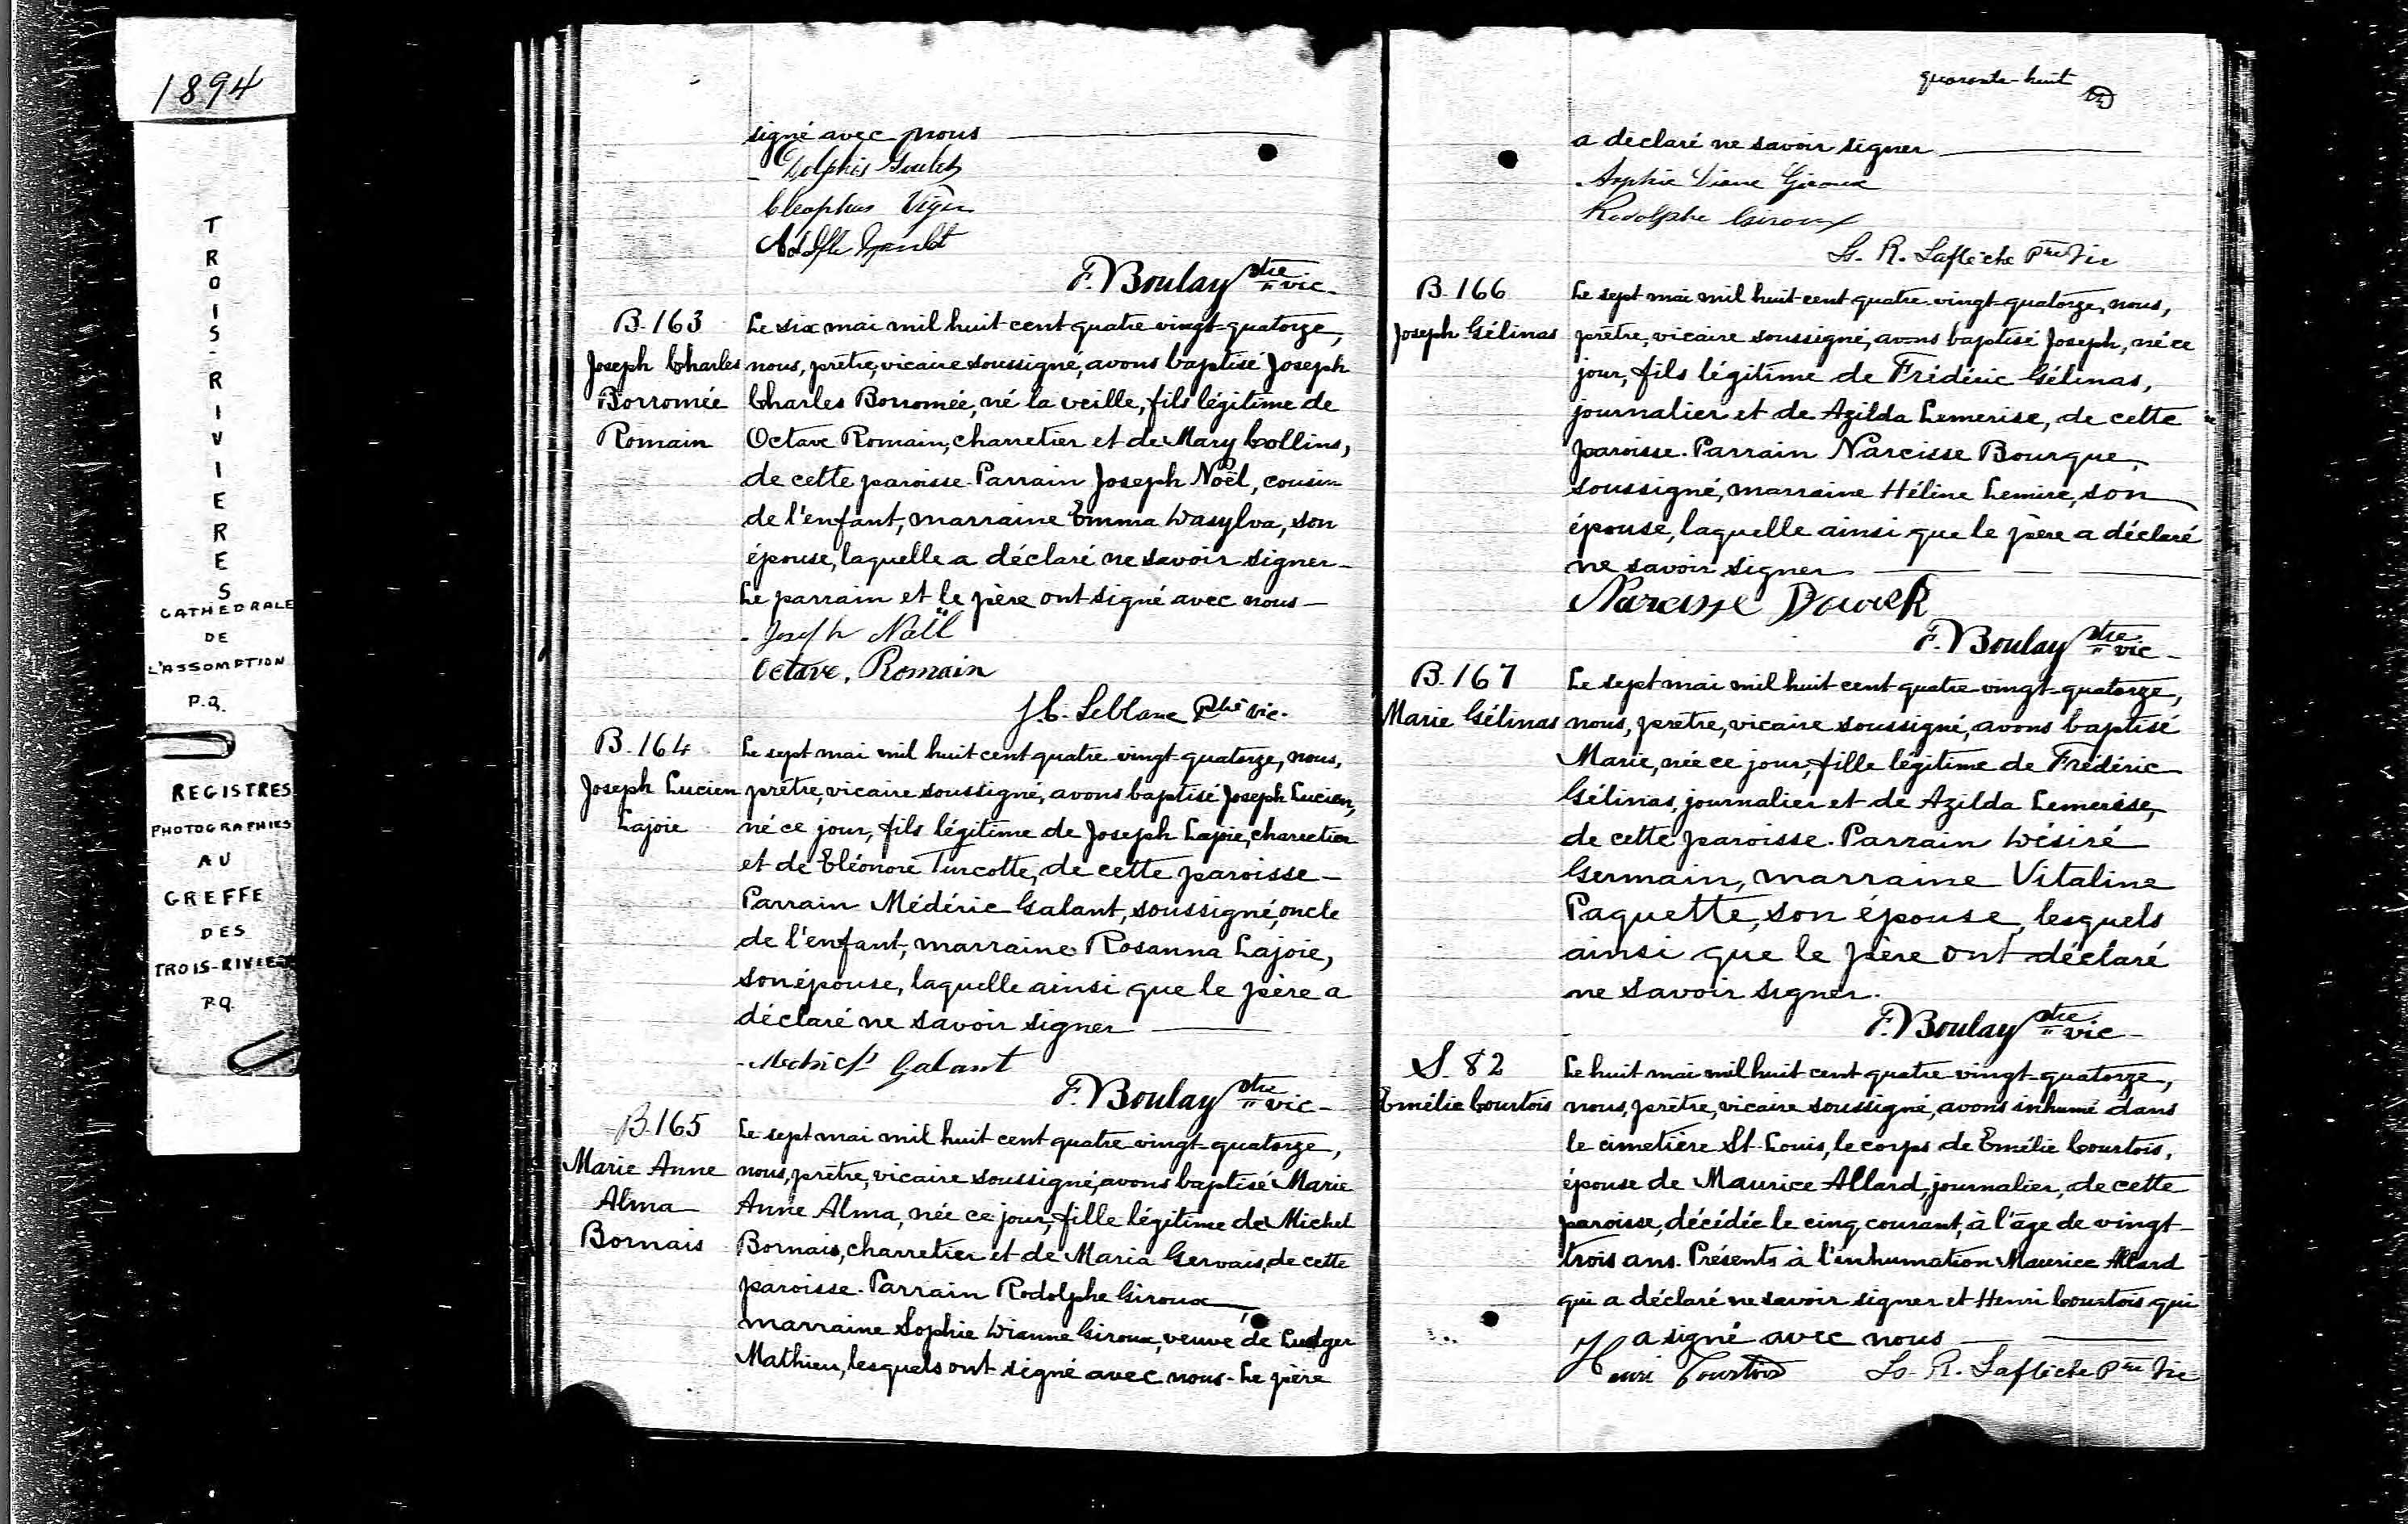 1894
TROIS-RIVIERES
CATHEDRALE
DE
L'ASSOMPTION
P.Q.
REGISTRES
PHOTOGRAPHIES
AU
GREFFE
DES
TROIS-RIVIE
P.Q.
signé avec nous
Dolphis Goulet
Cleophas
F. Boulay ptre vic
B. 163
Joseph Charles
Borromée
Romain
Le six mai mil huit cent quatre vingt-quatorze,
nous, prêtre, vicaire soussigné, avons baptisé Joseph
Charles Borromée, né la veille, fils légitime de
Octave Romain, charretier et de Mary Collins,
de cette paroisse. Parrain Joseph Noël, cousin
de l'enfant, marraine Emma Dasylva, son
épouse, laquelle a déclaré ne savoir signer.
Le parrain et le père ont signé avec nous
Joseph Noël
Octave, Romain
J. C. Leblanc Ptre vic.
B. 164
Joseph Lucien
Lajoie
Le sept mai mil huit cent quatre vingt-quatorze, nous,
prêtre, vicaire soussigné, avons baptisé Joseph Lucien,
né ce jour, fils légitime de Joseph Lajoie, charretier
et de Eléonore Turcotte, de cette paroisse
Parrain Médéric Galant, soussigné, oncle
de l'enfant, marraine Rosanna Lajoie,
son épouse, laquelle ainsi que le père a
déclaré ne savoir signer
Galant
F. Boulay ptre vic
B. 165
Marie Anne
Alma
Bornais
Le sept mai mil huit cent quatre vingt-quatorze,
nous, prêtre, vicaire soussigné, avons baptisé Marie
Anne Alma, née ce jour, fille légitime de Michel
Bornais, charretier et de Maria Gervais, de cette
paroisse. Parrain Rodolphe Giroux
marraine Sophie Dianne Giroux, veuve de Ludger
Mathieu, lesquels ont signé avec nous. Le père
quarante-huit
a déclaré ne savoir signer
Sophie Diane Giroux
Rodolphe Giroux
L. R. Laflèche Ptre Vic
B. 166
Joseph Gélinas
Le sept mai mil huit cent quatre-vingt-quatorze, nous,
prêtre, vicaire soussigné, avons baptisé Joseph, né ce
jour, fils légitime de Frédéric Gélinas,
journalier et de Azilda Lemerise, de cette
paroisse. Parrain Narcisse Bourque,
soussigné, marraine Héline Lemire, son
épouse, laquelle ainsi que le père a déclaré
ne savoir signer
Narcisse
F. Boulay ptre vic
B. 167
Marie Gélinas
Le sept mai mil huit cent quatre-vingt-quatorze,
nous, prêtre, vicaire soussigné, avons baptisé
Marie, née ce jour, fille légitime de Frédéric
Gélinas, journalier et de Azilda Lemerise,
de cette paroisse. Parrain Désiré
Germain, marraine Vitaline
Paquette, son épouse, lesquels
ainsi que le père ont déclaré
ne savoir signer.
F. Boulay ptre vic
S. 82
Emélie Courtois
Le huit mai mil huit cent quatre vingt-quatorze,
nous, prêtre, vicaire soussigné, avons inhumé dans
le cimetière St-Louis, le corps de Emélie Courtois,
épouse de Maurice Allard, journalier, de cette
paroisse, décédée le cinq courant, à l'âge de vingt-
trois ans. Présents à l'inhumation Maurice Allard
qui a déclaré ne savoir signer et Henri Courtois qui
a signé avec nous
Henri Courtois L. R. Laflèche Ptre Vic